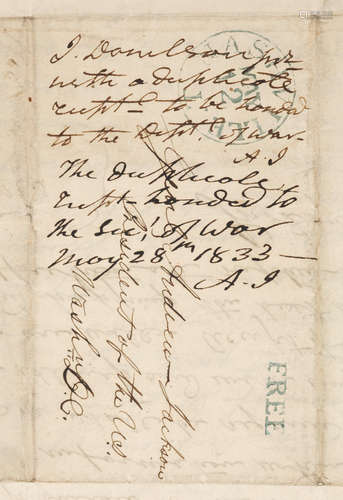 J. Donelson for
with a duplicate
recpt– to be handed
to the Dept. of war–
A J
The duplicate
recpt– handed to
the Sec. of War
May 28th 1833–
A. J
Andrew Jackson
President of the U.S.
Washn. D.C.
FREE